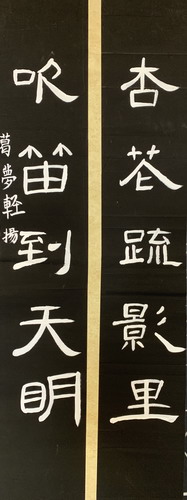 杏花疏影里
吹笛到天明
葛夢軽揚